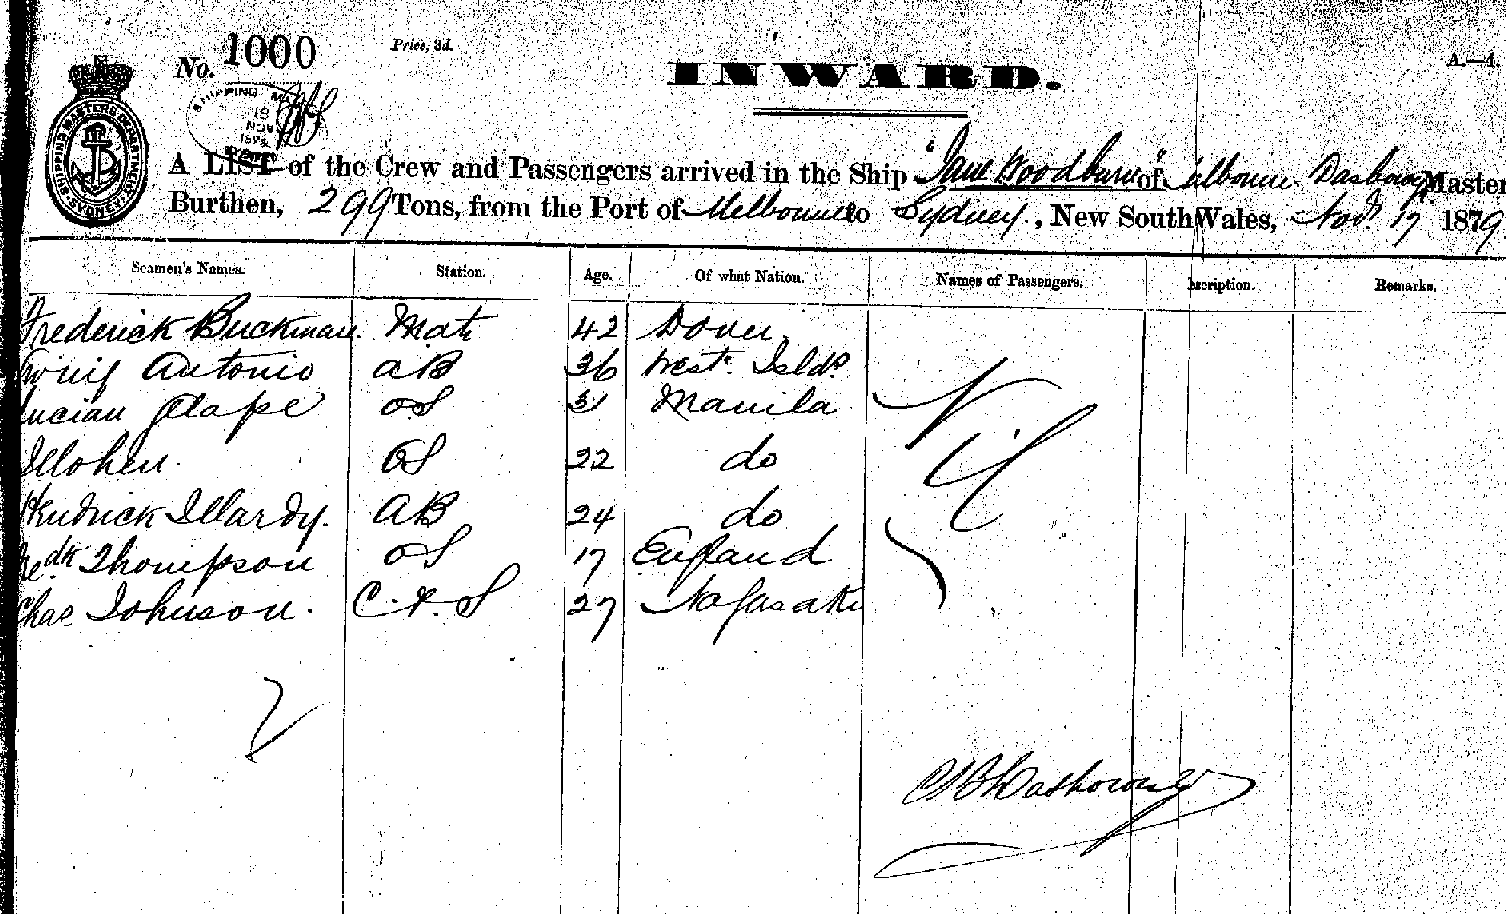 No. 1000
Price, 3d.
INWARD.
A.—4.
A LIST of the Crew and Passengers arrived in the Ship "Jane Woodburn" of Master
Burthen, 299 Tons, from the Port of Melbourne to Sydney, New South Wales, Novr 17 1879
Seamen's Names. Station. Age. Of what Nation. Names of Passengers. escription. Remarks.
Frederick Buckman. Mate 42 Dover
Antonio AB 36 West. Islds.
Lucian OS 31 Manila
OS 22 do
AB 24 do
Fredk Thompson OS 17 England
Chas Johnson. C. & S 27 Nagasaki
Nil